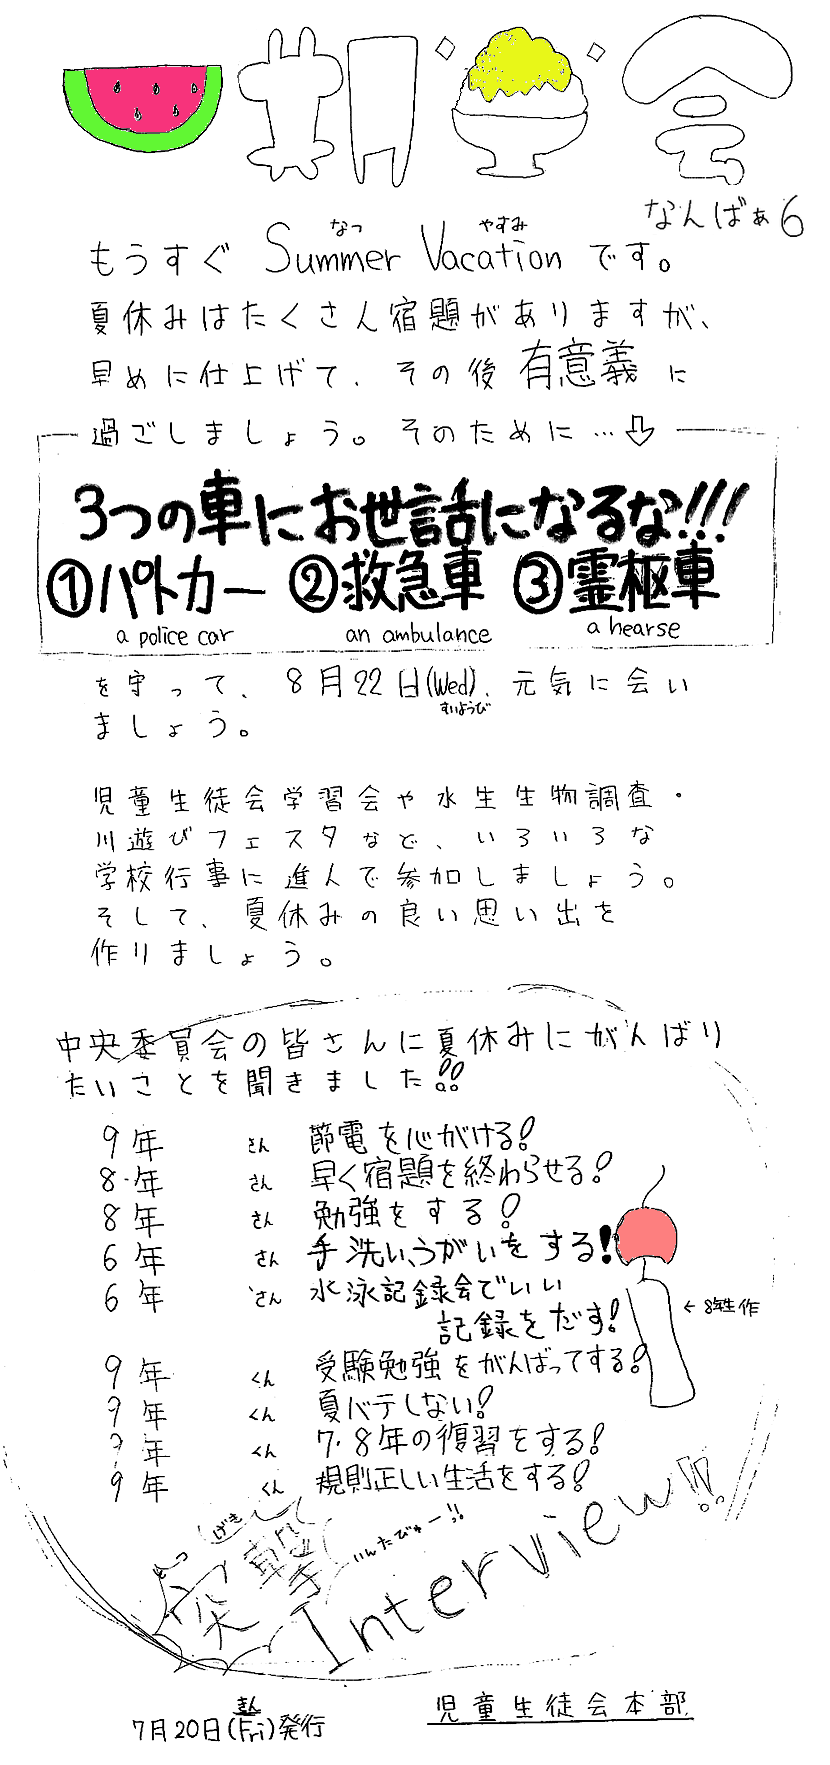 期会
なんばぁ6
なつ やすみ
もうすぐ Summer Vacation です。
夏休みはたくさん宿題がありますが、
早めに仕上げて、その後有意義に
過ごしましょう。そのために…⇩
3つの車にお世話になるな!!!
①パトカー ②救急車 ③霊柩車
a police car an ambulance a hearse
を守って、8月22日(Wed)、元気に会い
すいようび
ましょう。
児童生徒会学習会や水生生物調査・
川遊びフェスタなど、いろいろな
学校行事に進んで参加しましょう。
そして、夏休みの良い思い出を
作りましょう。
中央委員会の皆さんに夏休みにがんばり
たいことを聞きました!!
9年 さん 節電を心がける!
8年 さん 早く宿題を終わらせる!
8年 さん 勉強をする!
6年 さん 手洗い、うがいをする!
6年 さん 水泳記録会でいい
記録をだす!
←8年生作
9年 くん 受験勉強をがんばってする!
9年 くん 夏バテしない!
9年 くん 7・8年の復習をする!
9年 くん 規則正しい生活をする!
とつ げき
突撃 いんたびゅー!!
Interview!!
きん
7月20日(Fri)発行
児童生徒会本部